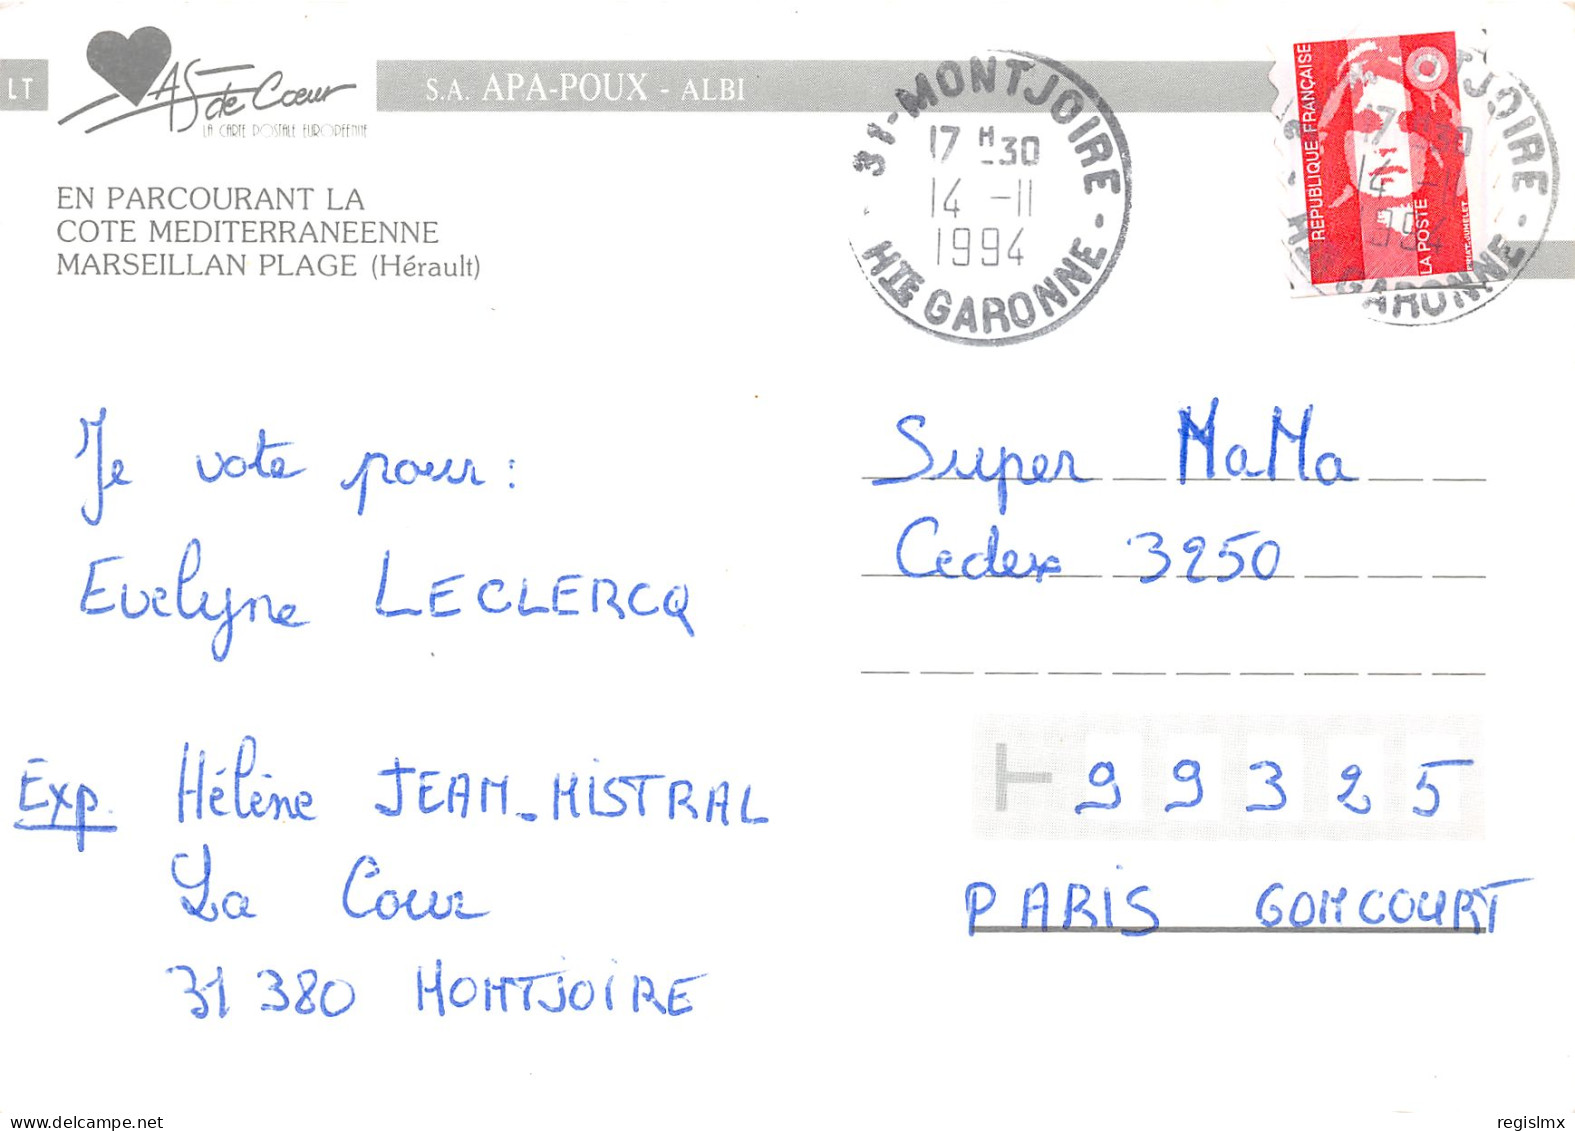 LT
As de Cœur
LA CARTE POSTALE EUROPÉENNE
S.A. APA-POUX - ALBI
EN PARCOURANT LA
COTE MEDITERRANEENNE
MARSEILLAN PLAGE (Hérault)
31-MONTJOIRE
17 H -30
14 -11
1994
HTE GARONNE
REPUBLIQUE FRANÇAISE
LA POSTE
Je vote pour :
Evelyne LECLERCQ
Super MaMa
Cedex 3250
Exp. Hélène JEAN-MISTRAL
La Cour
31 380 MONTJOIRE
99325
PARIS GONCOURT
www.delcampe.net
regislmx